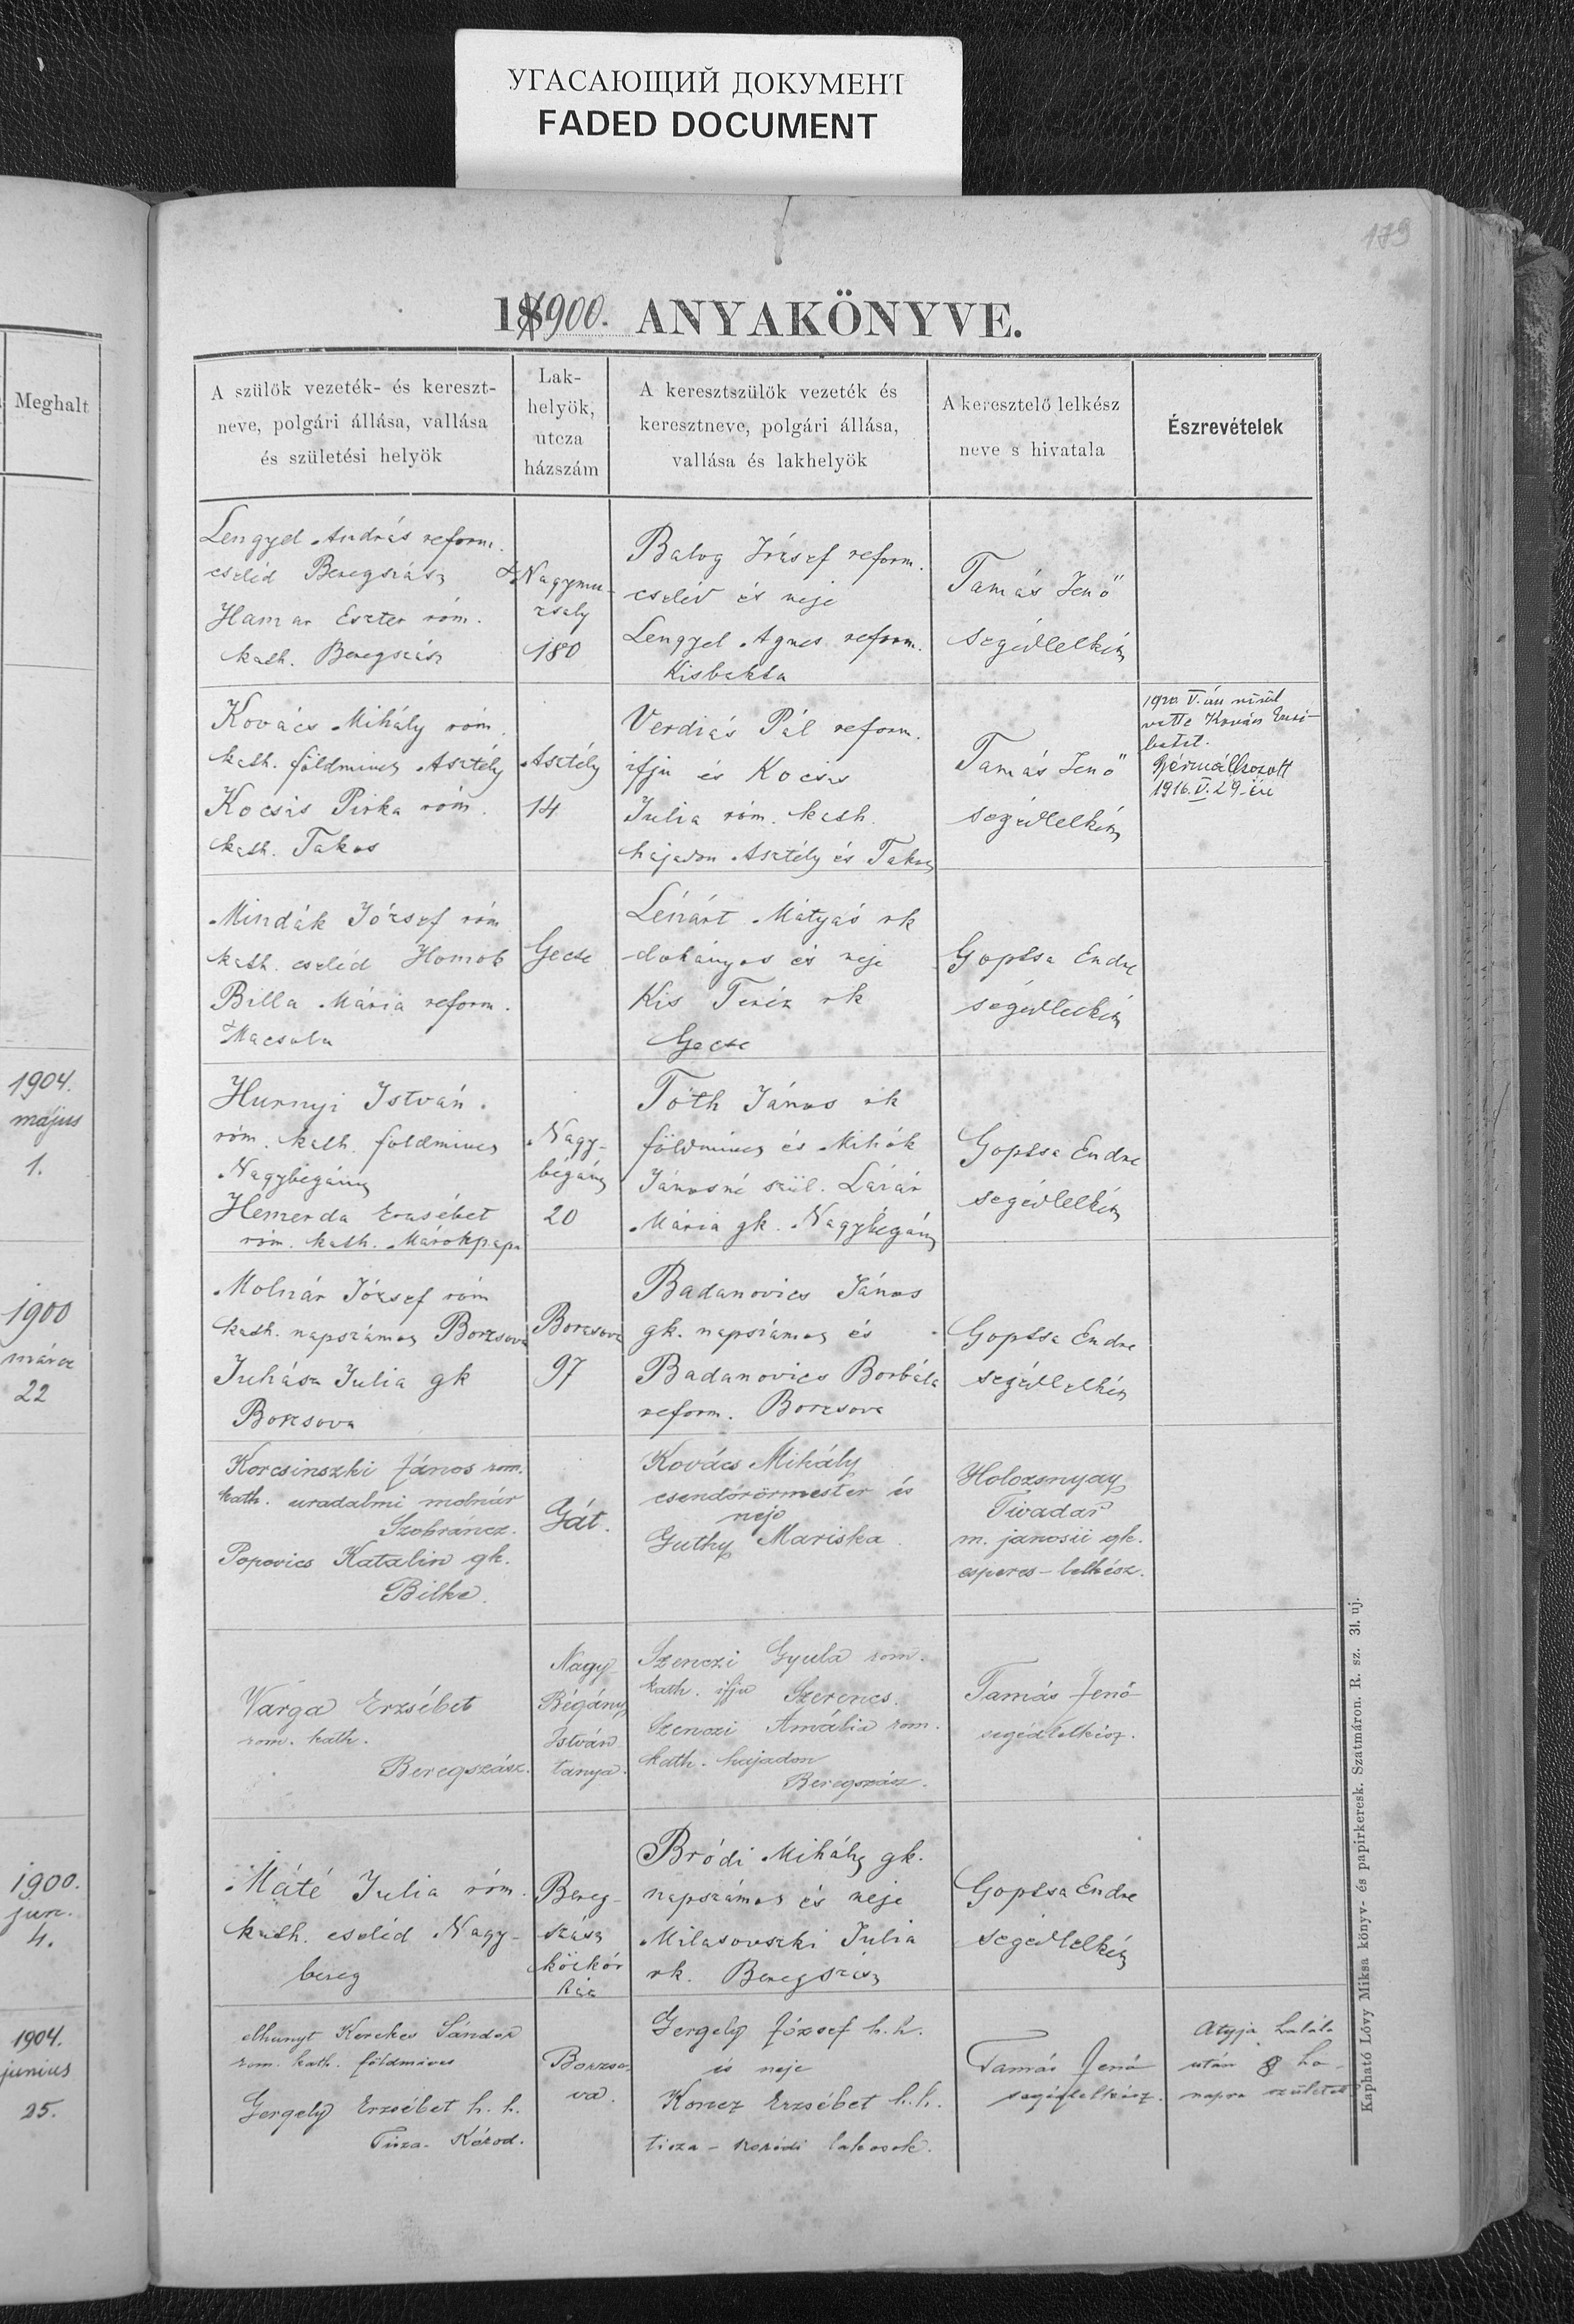 УГАСАЮЩИЙ ДОКУМЕНТ
FADED DOCUMENT
179
1900. ANYAKÖNYVE.
Meghalt
1904.
május
1.
1900
márcz
22
1900.
jun.
4.
1904.
junius
25.
A szülök vezeték- és kereszt-
neve, polgári állása, vallása
és születési helyök
Lak-
helyök,
utcza
házszám
A keresztszülök vezeték és
keresztneve, polgári állása,
vallása és lakhelyök
A keresztelő lelkész
neve s hivatala
Észrevételek
Lengyel András reform.
cseléd Beregszász
Hamar Eszter róm.
kath. Beregszász
Nagymu-
zsaly
180
Balog József reform.
cseléd és neje
Lengyel Agnes reform.
Kisbakta
Tamás Jenő
segédlelkész
Kovács Mihály róm.
kath. földmives Asztély
Kocsis Pirka róm.
kath. Takos
Asztély
14
Verdiás Pál reform.
ifju és Kocsis
Julia róm. kath.
hajadon Asztély és Takos
Tamás Jenő
segédlelkész
1920 V. án nőül
vette Kovács Erzsé-
betet.
bérmálkozott
1916. V. 29-én
Mindák József róm
kath. cseléd Homok
Billa Mária reform.
Macsola
Gecse
Lénárt Mátyás rk
dohányos és neje
Kis Teréz rk
Gecse
Goptsa Endre
segédlelkész
Hurnyi István
róm. kath. földmives
Nagybégány
Hemerda Erzsébet
róm. kath. Márokpapi
Nagy-
bégány
20
Tóth János rk
földmives és Mihók
Jánosné szül. Lázár
Mária gk. Nagybégány
Goptsa Endre
segédlelkész
Molnár József róm
kath. napszámos Borzsova
Juhász Julia gk
Borzsova
Borzsova
97
Badanovics János
gk. napszámos és
Badanovics Borbála
reform. Borzsova
Goptsa Endre
segédlelkész
Korcsinszki János rom.
kath. uradalmi molnár
Szobráncz.
Popovics Katalin gk.
Bilke.
Gát.
Kovács Mihály
csendőrőrmester és
neje
Guthy Mariska
Holozsnyay
Tivadar
m. jánosii gk.
esperes-lelkész.
Varga Erzsébet
rom. kath.
Beregszász.
Nagy
Bégány
István
tanya.
Szenczi Gyula rom.
kath. ifju Szerencs.
Szenczi Amália rom.
kath. hajadon
Beregszász.
Tamás Jenő
segédlelkész.
Máté Julia róm.
kath. cseléd Nagy-
bereg
Bereg-
szász
közkór
ház
Bródi Mihály gk.
napszámos és neje
Milasovszki Julia
rk. Beregszász
Goptsa Endre
segédlelkész
elhunyt Kerekes Sándor
rom. kath. földmives
Gergely Erzsébet h. h.
Tisza-Kóród.
Borzso-
va.
Gergely József h. h.
és neje
Koncz Erzsébet h. h.
tisza-kóródi lakosok.
Tamás Jenő
segédlelkész.
Atyja halála
után 8 hó-
napra született
Kapható Lővy Miksa könyv- és papirkeresk. Szatmáron. R. sz. 31. uj.